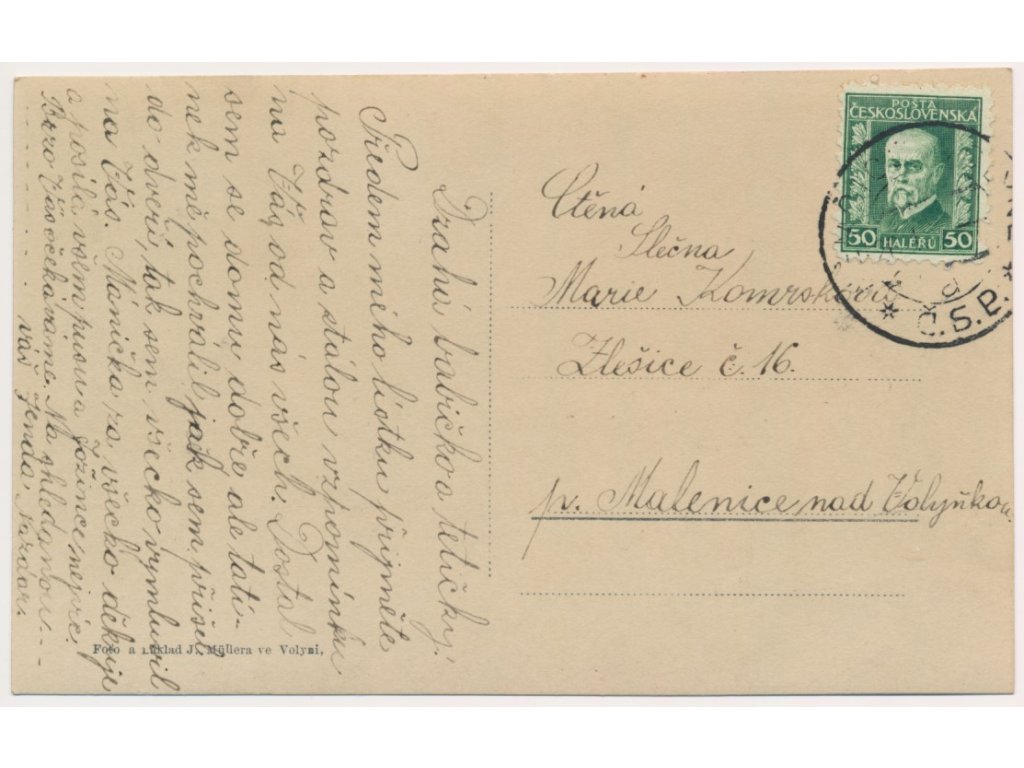 Drahá babičko a tetičky!
Předem mého lístku přijměte
pozdrav a stálou vzpomínku
na Vás od nás všech. Dostal
sem se domu dobře ale tatí-
nek mě pochválil jak sem přišel
do dveří, tak sem všecko vymluvil
na Vás. Mánička za všecko děkuje
a posílá vám pusu a Fózince nejvíc.
Brzo Vás očekáváme. Na shledanou
váš Jenda. Nazdar.
Foto a náklad J. Müllera ve Volyni,
POŠTA
ČESKOSLOVENSKÁ
50 HALÉŘŮ 50
Č.S.P.
Ctěná
Slečna
Marie Komrsková
Zlešice č. 16.
p. Malenice nad Volyňkou